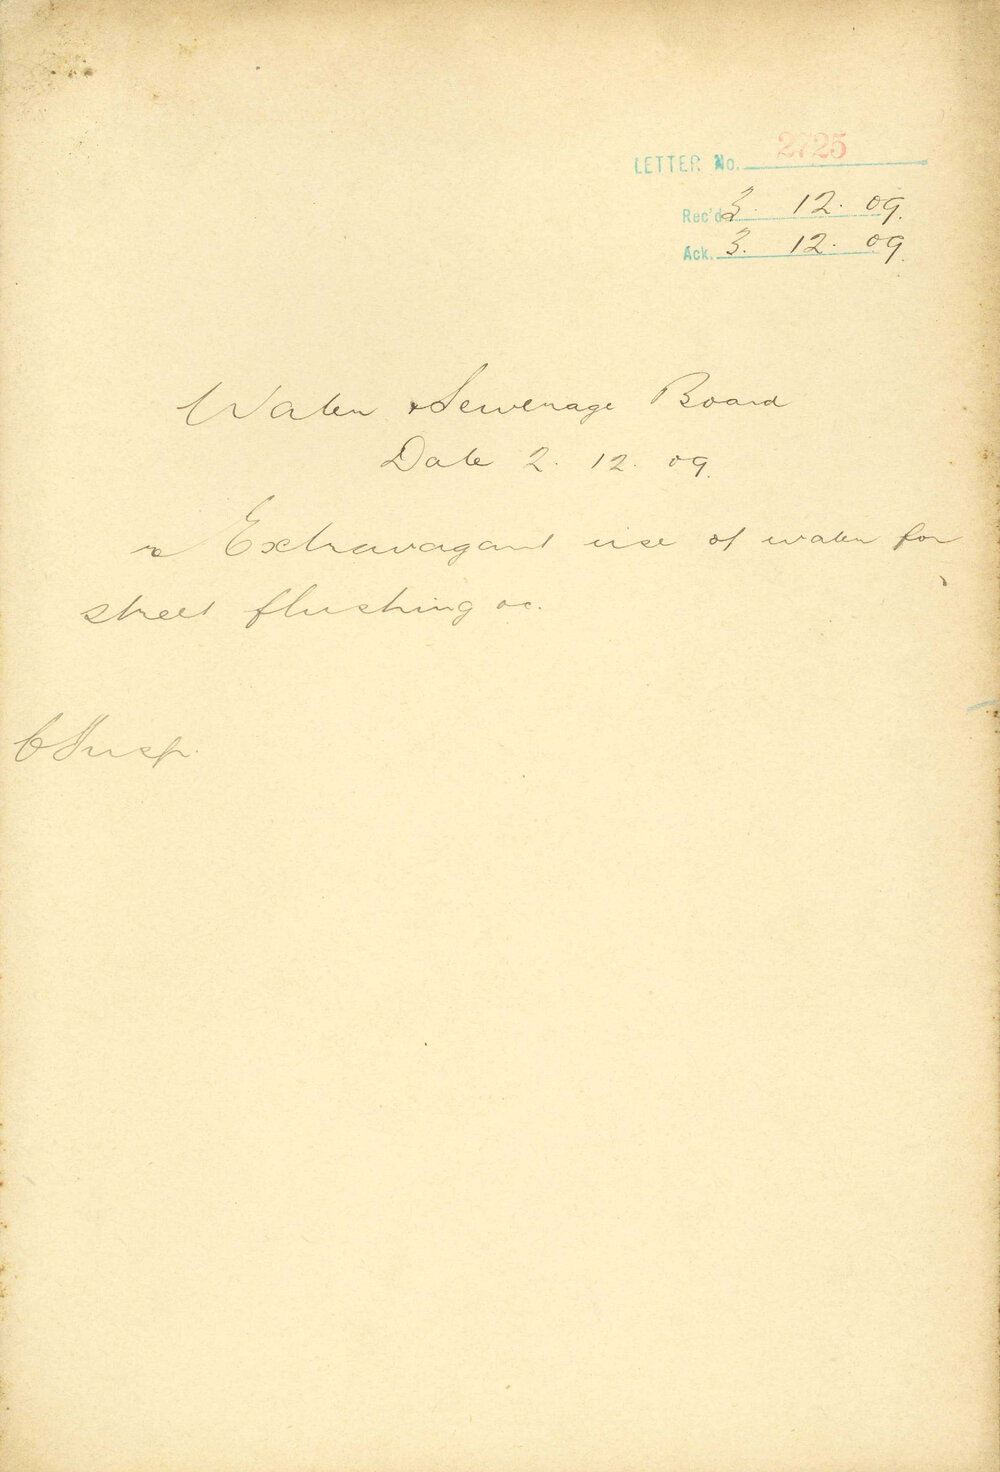 LETTER No. 2725
Rec'd 3. 12. 09.
Ack. 3. 12. 09.
Water & Sewerage Board
Date 2. 12. 09.
re Extravagant use of water for
street flushing &c.
C Insp.